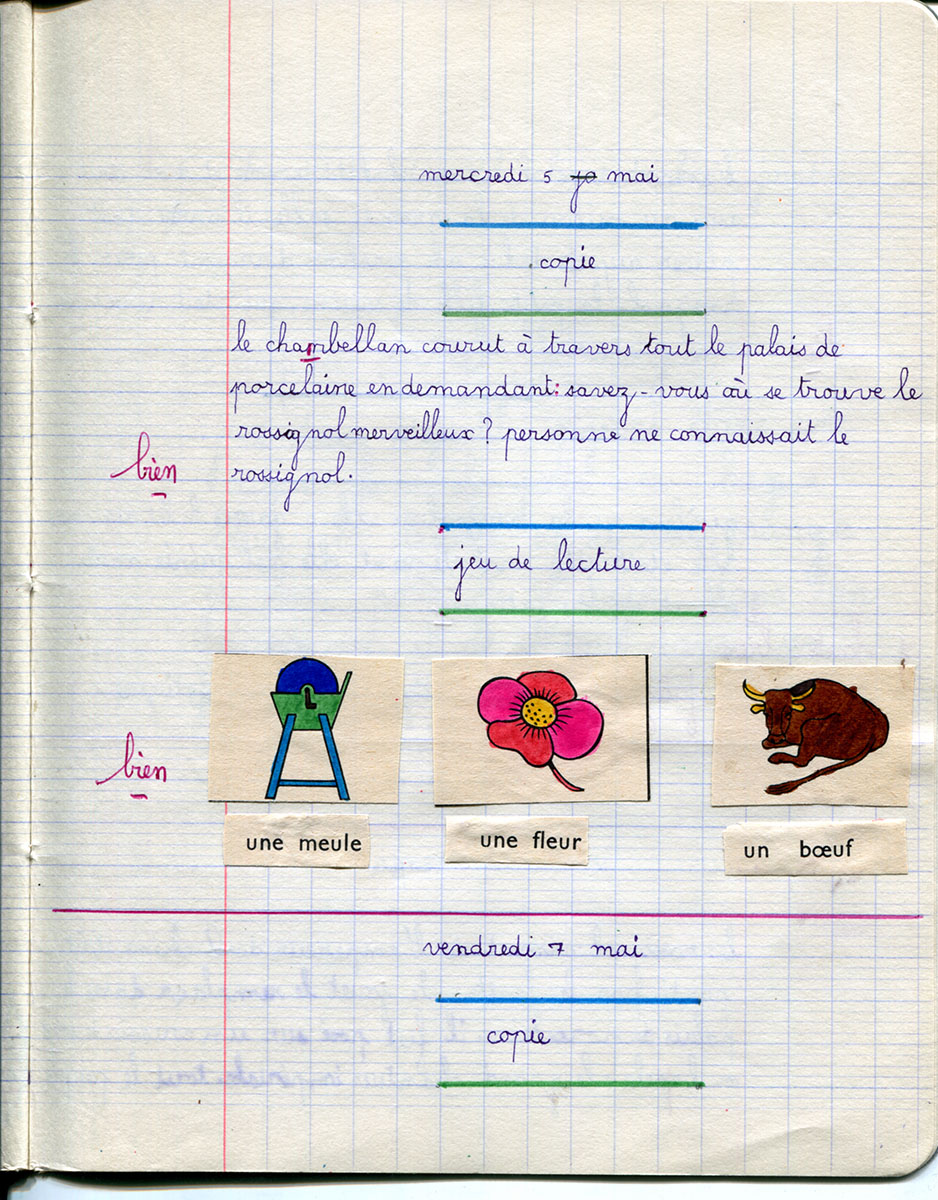 mercredi 5 mai
copie
le chambellan courut à travers tout le palais de
porcelaine en demandant: savez-vous où se trouve le
rossignol merveilleux ? personne ne connaissait le
bien
rossignol.
jeu de lecture
bien
une meule
une fleur
un bœuf
vendredi 7 mai
copie